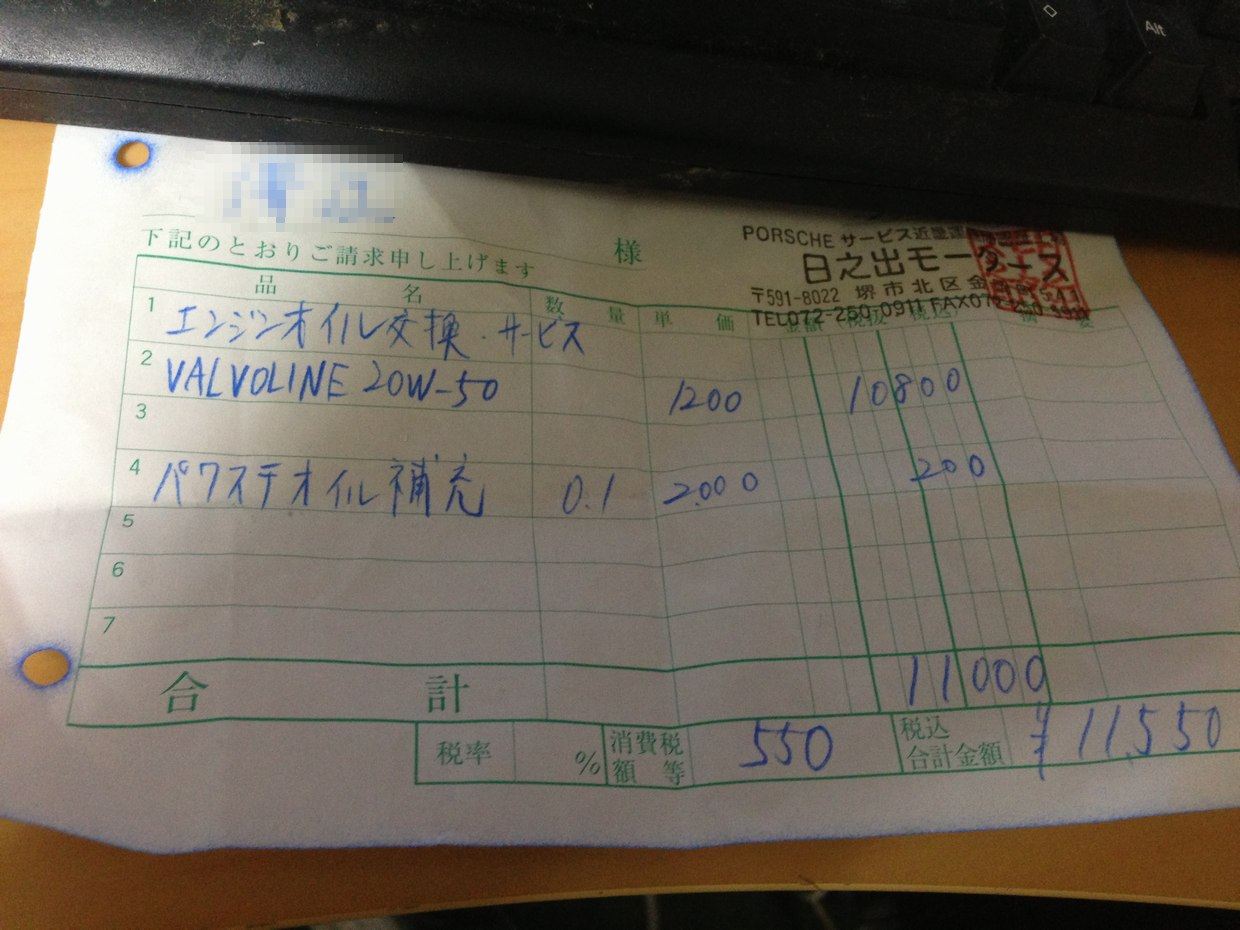 Alt
様
下記のとおりご請求申し上げます
PORSCHE サービス近畿
日之出モータース
〒591-8022 堺市北区金
TEL072-250-0911 FAX072-250
品 名 数 量 単 価 金額 税抜 税込 摘 要
1 エンジンオイル交換・サービス
2 VALVOLINE 20W-50 1200 10800
3
4 パワステオイル補充 0.1 2000 200
5
6
7
合 計 11000
税率 % 消費税額等 550 税込合計金額 ¥11,550